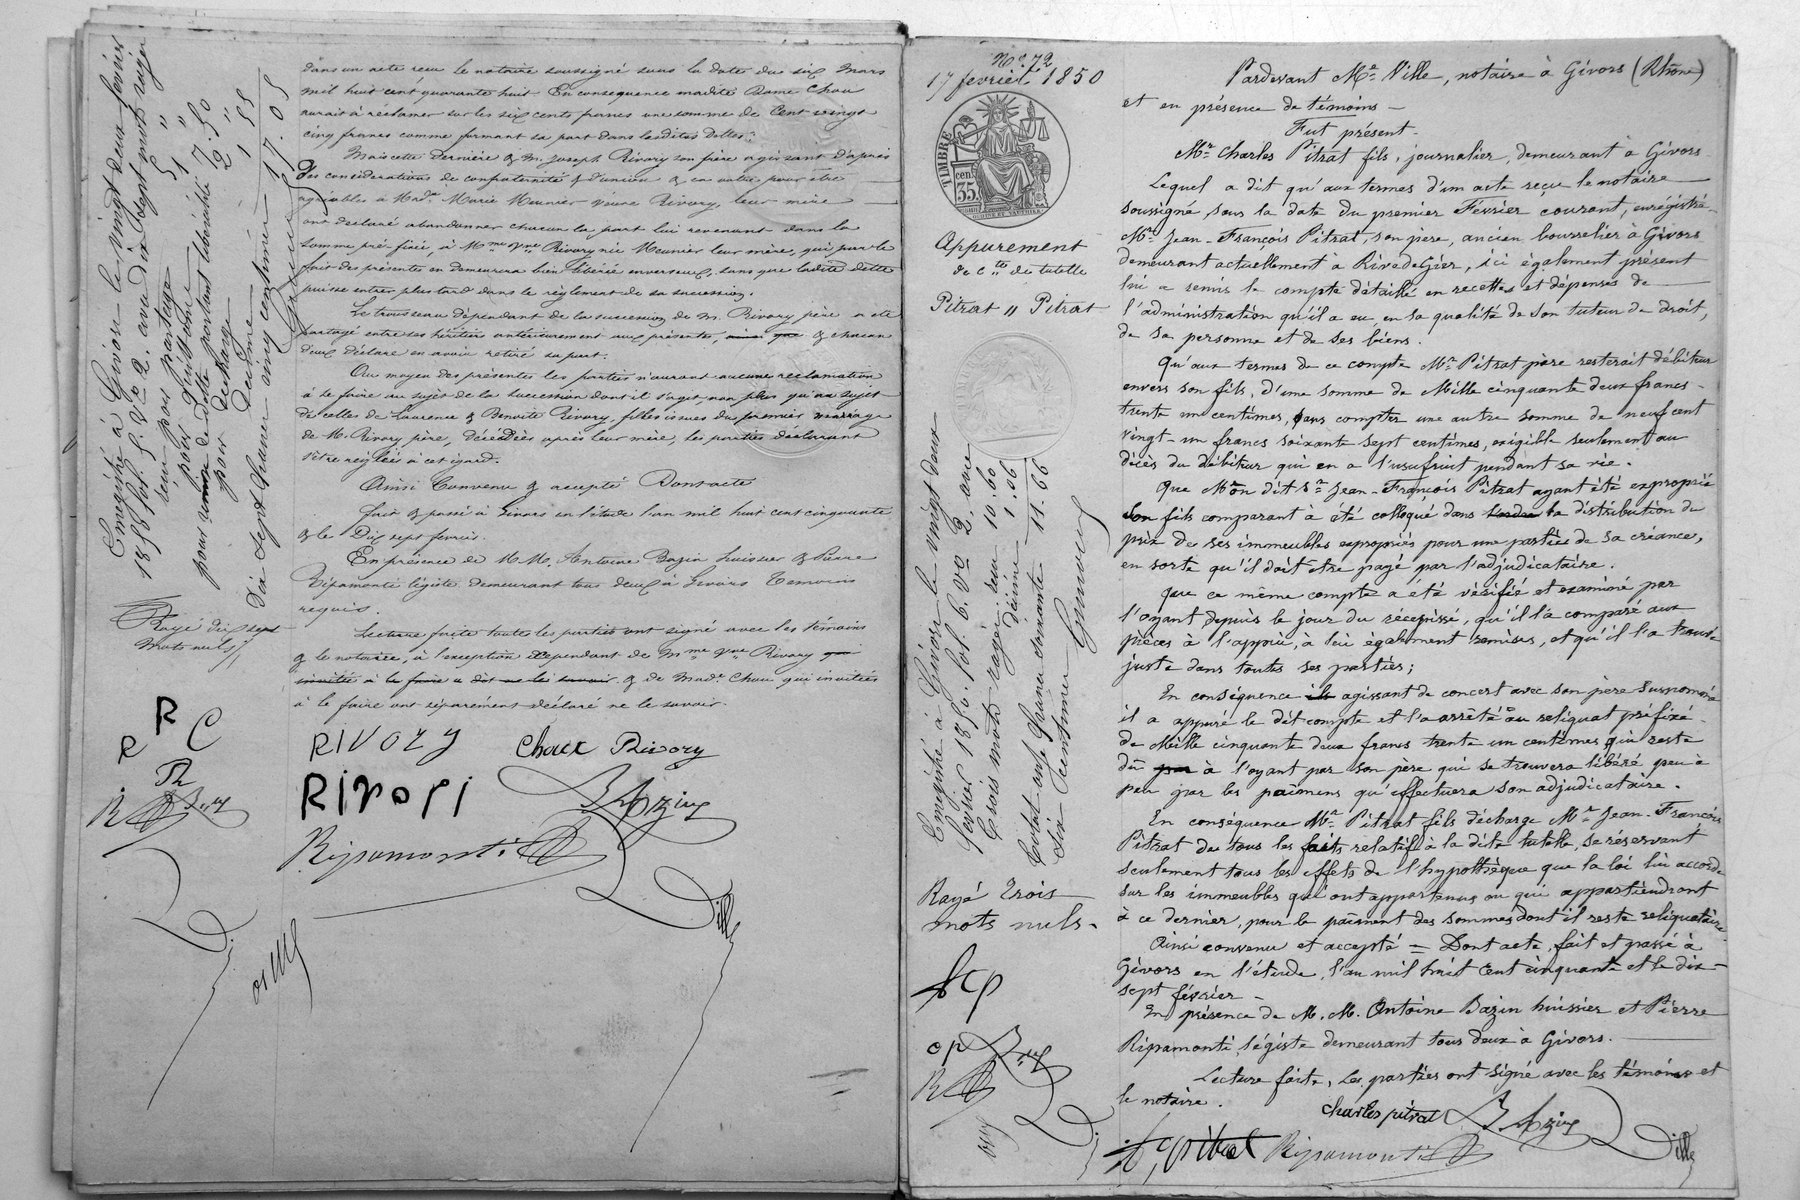 dans un acte reçu le notaire soussigné sous la date du six Mars
mil huit cent quarante huit. En consequence madite Dame Chou
aurait à réclamer sur les six cents francs une somme de Cent vingt
cinq francs comme formant sa part dans lesdites Dettes.
Mais cette dernière & M. Joseph Rivory son frère agissant d'après
des considérations de confraternité & d'union & en outre pour être
agréables à Made. Marie Meunier veuve Rivory, leur mère
ont déclaré abandonner chacun la part lui revenant dans la
somme pré-fixée, à Mme Vve Rivory née Meunier leur mère, qui par le
fait des présentes en demeurera bien libérée envers eux, sans que ladite dette
puisse entrer plus tard dans le règlement de sa succession.
Le trousseau dépendant de la succession de M. Rivory père a été
partagé entre ses héritiers antérieurement aux présentes, & chacun
d'eux déclare en avoir retiré sa part.
Au moyen des présentes les parties n'auront aucune réclamation
à se faire au sujet de la succession dont il s'agit, non plus qu'au sujet
de celles de Laurence & Benoite Rivory, filles issues du premier mariage
de M. Rivory père, décédées après leur mère, les parties déclarant
s'être réglées à cet égard.
Ainsi Convenu & accepté Dont acte
fait & passé à Givors en l'étude l'an mil huit cent cinquante
& le Dix sept février.
En présence de M.M. Antoine Bazin huissier & Pierre
Ripamonti légiste demeurant tous deux à Givors Temoins
requis.
Lecture faite toutes les parties ont signé avec les témoins
& le notaire, à l'exception cependant de Mme Vve Rivory qui
invitée à le faire a dit ne le savoir. & de Made. Chou qui invitées
à le faire ont séparément déclaré ne le savoir.
RIVORY Choux Rivory
RIVORI Bazin
Ripamonti
Ville
Enregistré à Givors le vingt deux février
1850 fol. 5. Vo 2. avec dix sept mots rayés
reçu pour partage 5 "
pour 5 "
pour de dette portant libération 7 50
pour décharge 2 "
décime 1 55
Dix sept francs cinq centimes 17.05
Rayé dix sept
mots nuls
R C
R
R
No 72
17 fevrier 1850
TIMBRE
35 cen.
Appurement
de cte de tutelle
Pitrat " Pitrat
Enregistré à Givors le vingt deux
février 1850. fol. 6. Vo 2. avec
trois mots rayés. reçu 10.60
décime 1.06
Total onze francs soixante 11.66
six centimes
Rayé Trois
mots nuls.
fcp
cp
Pardevant Me Ville, notaire à Givors (Rhône)
et en présence de témoins —
Fut présent.
Mr Charles Pitrat fils, journalier, demeurant à Givors
Lequel a dit qu'aux termes d'un acte reçu le notaire
soussigné, sous la date du premier Février courant, enregistré
Mr Jean-François Pitrat, son père, ancien bourrelier à Givors
demeurant actuellement à RivedeGier, ici également présent
lui a remis le compte détaillé en recettes et dépenses de
l'administration qu'il a eu, en sa qualité de son tuteur de droit,
de sa personne et de ses biens.
Qu'aux termes de ce compte Mr Pitrat père resterait débiteur
envers son fils, d'une somme de Mille cinquante deux francs
trente un centimes, sans compter une autre somme de neuf cent
vingt-un francs soixante sept centimes, exigible seulement au
décès du débiteur qui en a l'usufruit pendant sa vie.
Que Mon dit Sr Jean-François Pitrat ayant été exproprié
son fils comparant a été colloqué dans l'ordre la distribution du
prix de ses immeubles expropriés pour une partie de sa créance,
en sorte qu'il doit être payé par l'adjudicataire.
Que ce même compte a été vérifié et examiné par
l'oyant depuis le jour du récépissé, qu'il l'a comparé aux
pièces à l'appui, à lui également remises, et qu'il l'a trouvé
juste dans toutes ses parties;
En conséquence ils agissant de concert avec son père susnommé
il a appuré le dit compte et l'a arrêté au reliquat préfixé
de Mille cinquante deux francs trente un centimes qui reste
dû par à l'oyant par son père qui se trouvera libéré peu à
peu par les paiemens qu'effectuera son adjudicataire.
En conséquence Mr Pitrat fils décharge Mr Jean-François
Pitrat de tous les faits relatifs à la dite tutelle, se réservant
seulement tous les effets de l'hypothèque que la loi lui accorde
sur les immeubles qui ont appartenus ou qui appartiendront
à ce dernier, pour le paiement des sommes dont il reste reliquataire
Ainsi convenu et accepté = Dont acte, fait et passé à
Givors en l'étude, l'an mil huit cent cinquante et le dix-
sept février —
En présence de M.M. Antoine Bazin huissier et Pierre
Ripamonti, légiste demeurant tous deux à Givors.
Lecture faite, Les parties ont signé avec les témoins et
le notaire.
charles pitrat Bazin
pitrat Ripamonti Ville